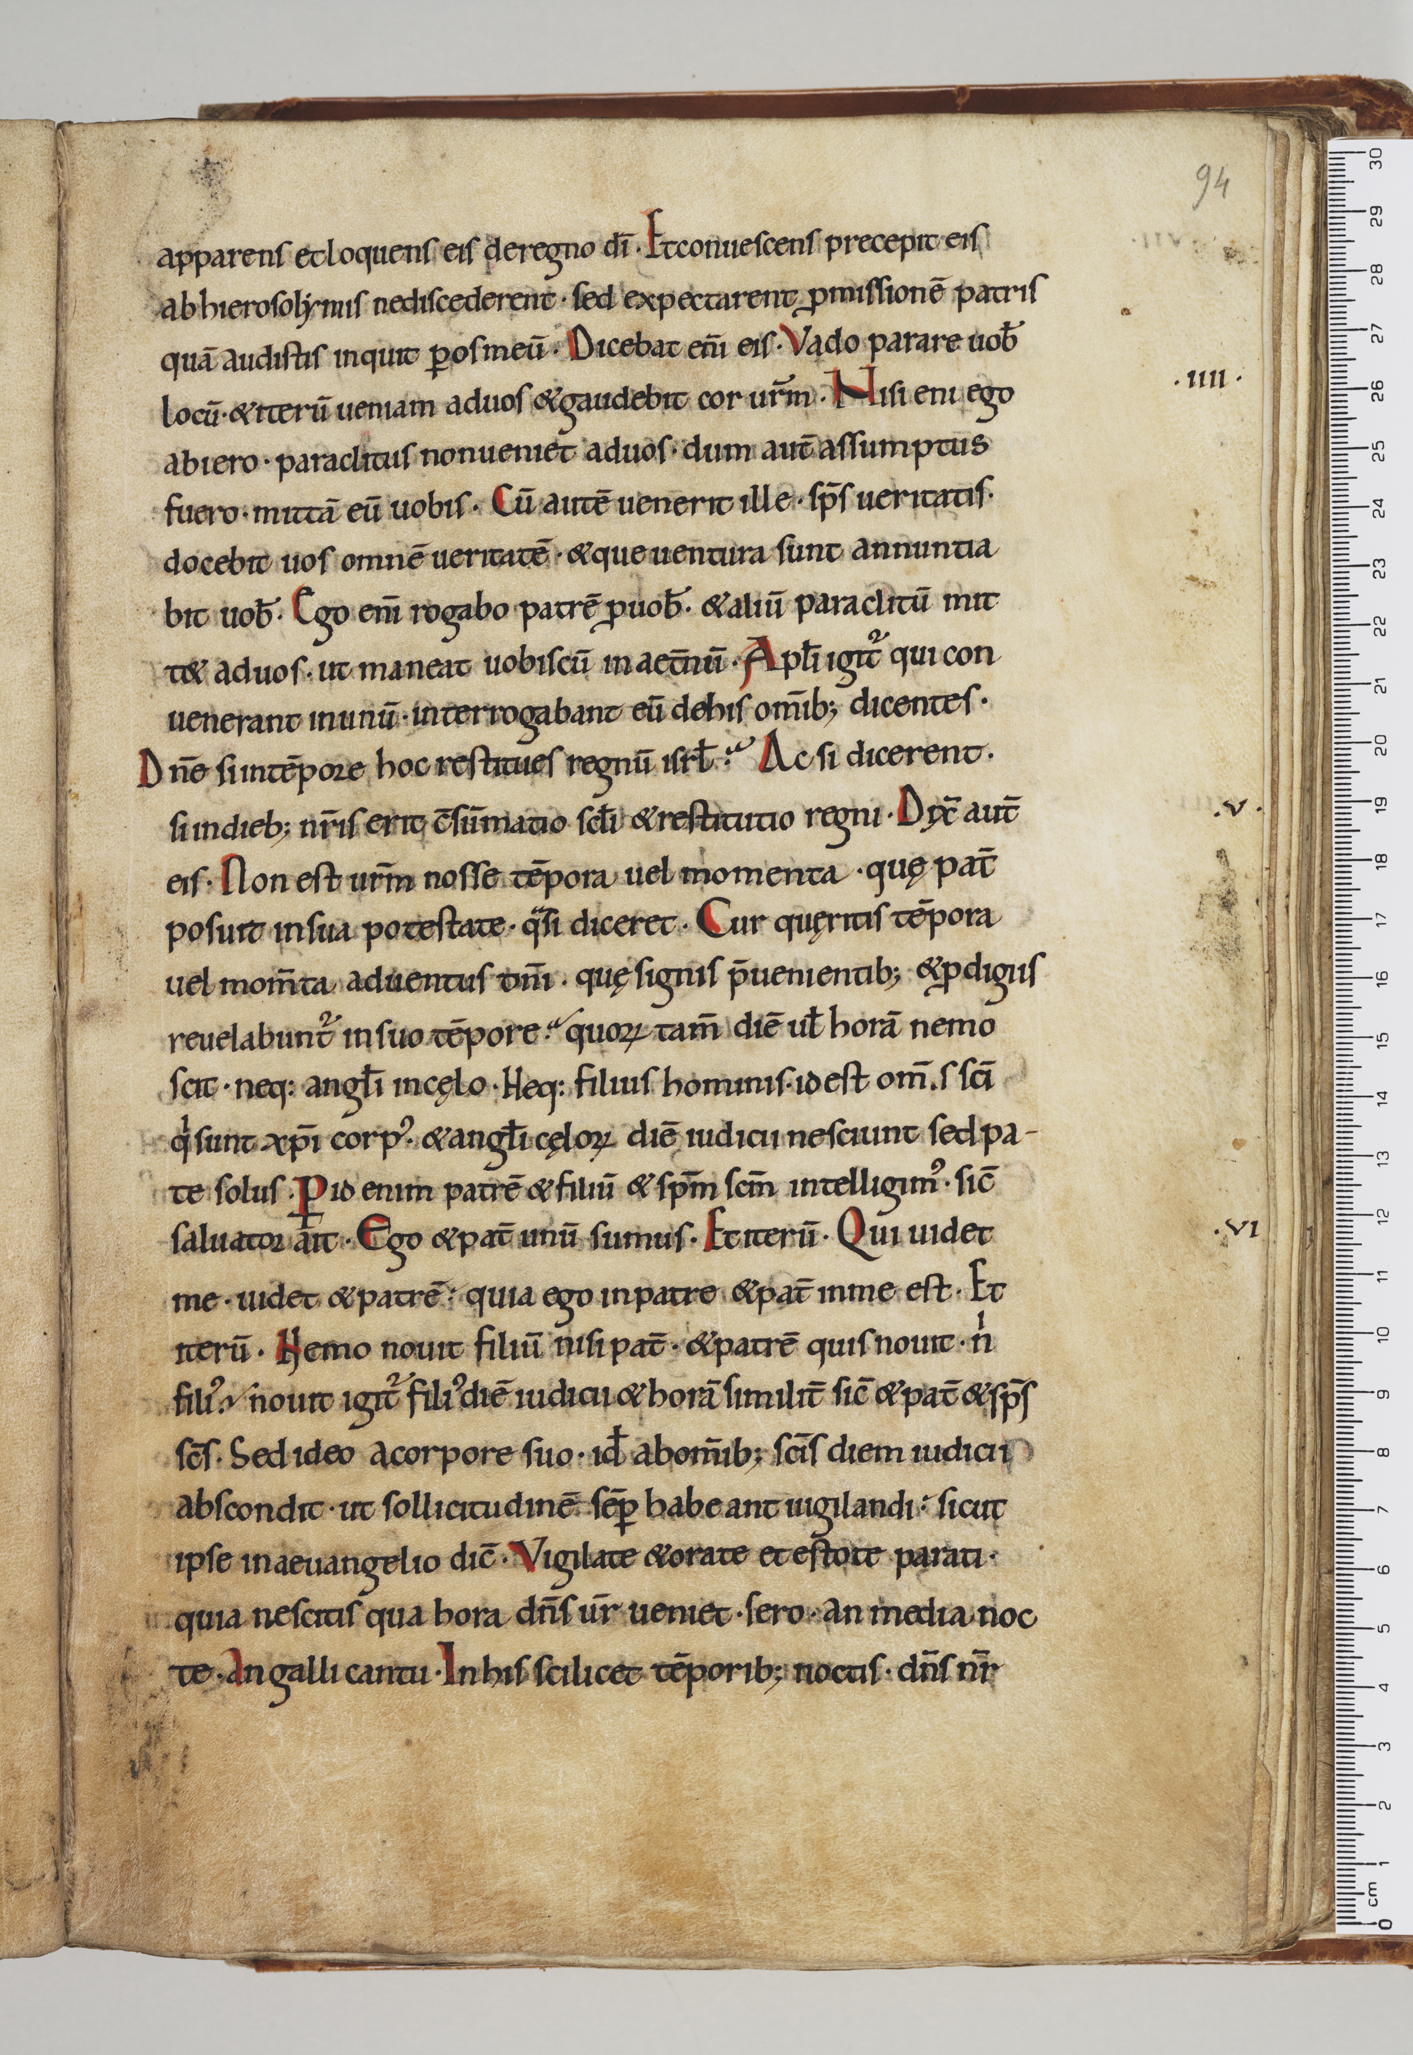 94
apparens et loquens eis de regno dī · Et conuescens precepit eis
ab hierosolymis ne discederent · sed expectarent ꝓmissionē patris
quā audistis inquit ꝑ os meū · Dicebat eni̅ eis · Vado parare uob̅
locū · & iterū ueniam ad uos & gaudebit cor ur̅m · Nisi eni ego
·IIII·
abiero · paraclitus non ueniet ad uos · dum aut̅ assumptus
fuero · mittā eū uobis · Cū autē uenerit ille · sp̅s ueritatis ·
docebit uos omnē ueritatē · & que uentura sunt annuntia
bit uob̅ · Ego eni̅ rogabo patrē ꝓ uob̅ · & aliū paraclitū mit
t& ad uos · ut maneat uobiscū in aet̅nū · Apl̅i igit᷑ qui con
uenerant in unū · interrogabant eū de his om̅ib; dicentes ·
Dn̅e si in tēpore hoc restitues regnū isrl̅ · Ac si dicerent ·
si in dieb; nr̅is erit c̅sūmatio scl̅i & restitutio regni · Dix̅ aut̅
·V·
eis · Non est ur̅m nosse tēpora uel momenta · quę pat̅
posuit in sua potestate · qᵃsi diceret · Cur quęritis tēpora
uel mom̅ta aduentus dn̅i · quę signis p̅uenientib; & ꝓdigiis
reuelabunt᷑ in suo tēpore · quoꝝ tam̅ diē ul̅ horā nemo
scit · neq: angl̅i in cęlo · Neq: filius hominis · id est om̅s sc̅i
qⁱ sunt xp̅i corpꝰ · & angl̅i cęloꝝ diē iudicii nesciunt sed pa-
te solus · P id enim patrē & filiū & sp̅m sc̅m intelligimꝰ · sic̅
saluator ait · Ego & pat̅ unū sumus · Et iterū · Qui uidet
·VI
me · uidet & patrē · quia ego in patre & pat̅ in me est · Et
iterū · Nemo nouit filiū nisi pat̅ · & patrē quis nouit · nⁱ
filiꝰ · nouit igit᷑ filiꝰ diē iudicii & horā similit̅ sic̅ & pat̅ & sp̅s
sc̅s · Sed ideo a corpore suo · id̅ ab om̅ib; sc̅is diem iudicii
abscondit · ut sollicitudinē sēꝑ habeant uigilandi · sicut
ipse in aeuangelio dic̅ · Vigilate & orate et estote parati ·
quia nescitis qua hora dn̅s ur̅ ueniet · sero · an media noc
te · An galli cantu · In his scilicet tēporib; noctis · dn̅s nr̅